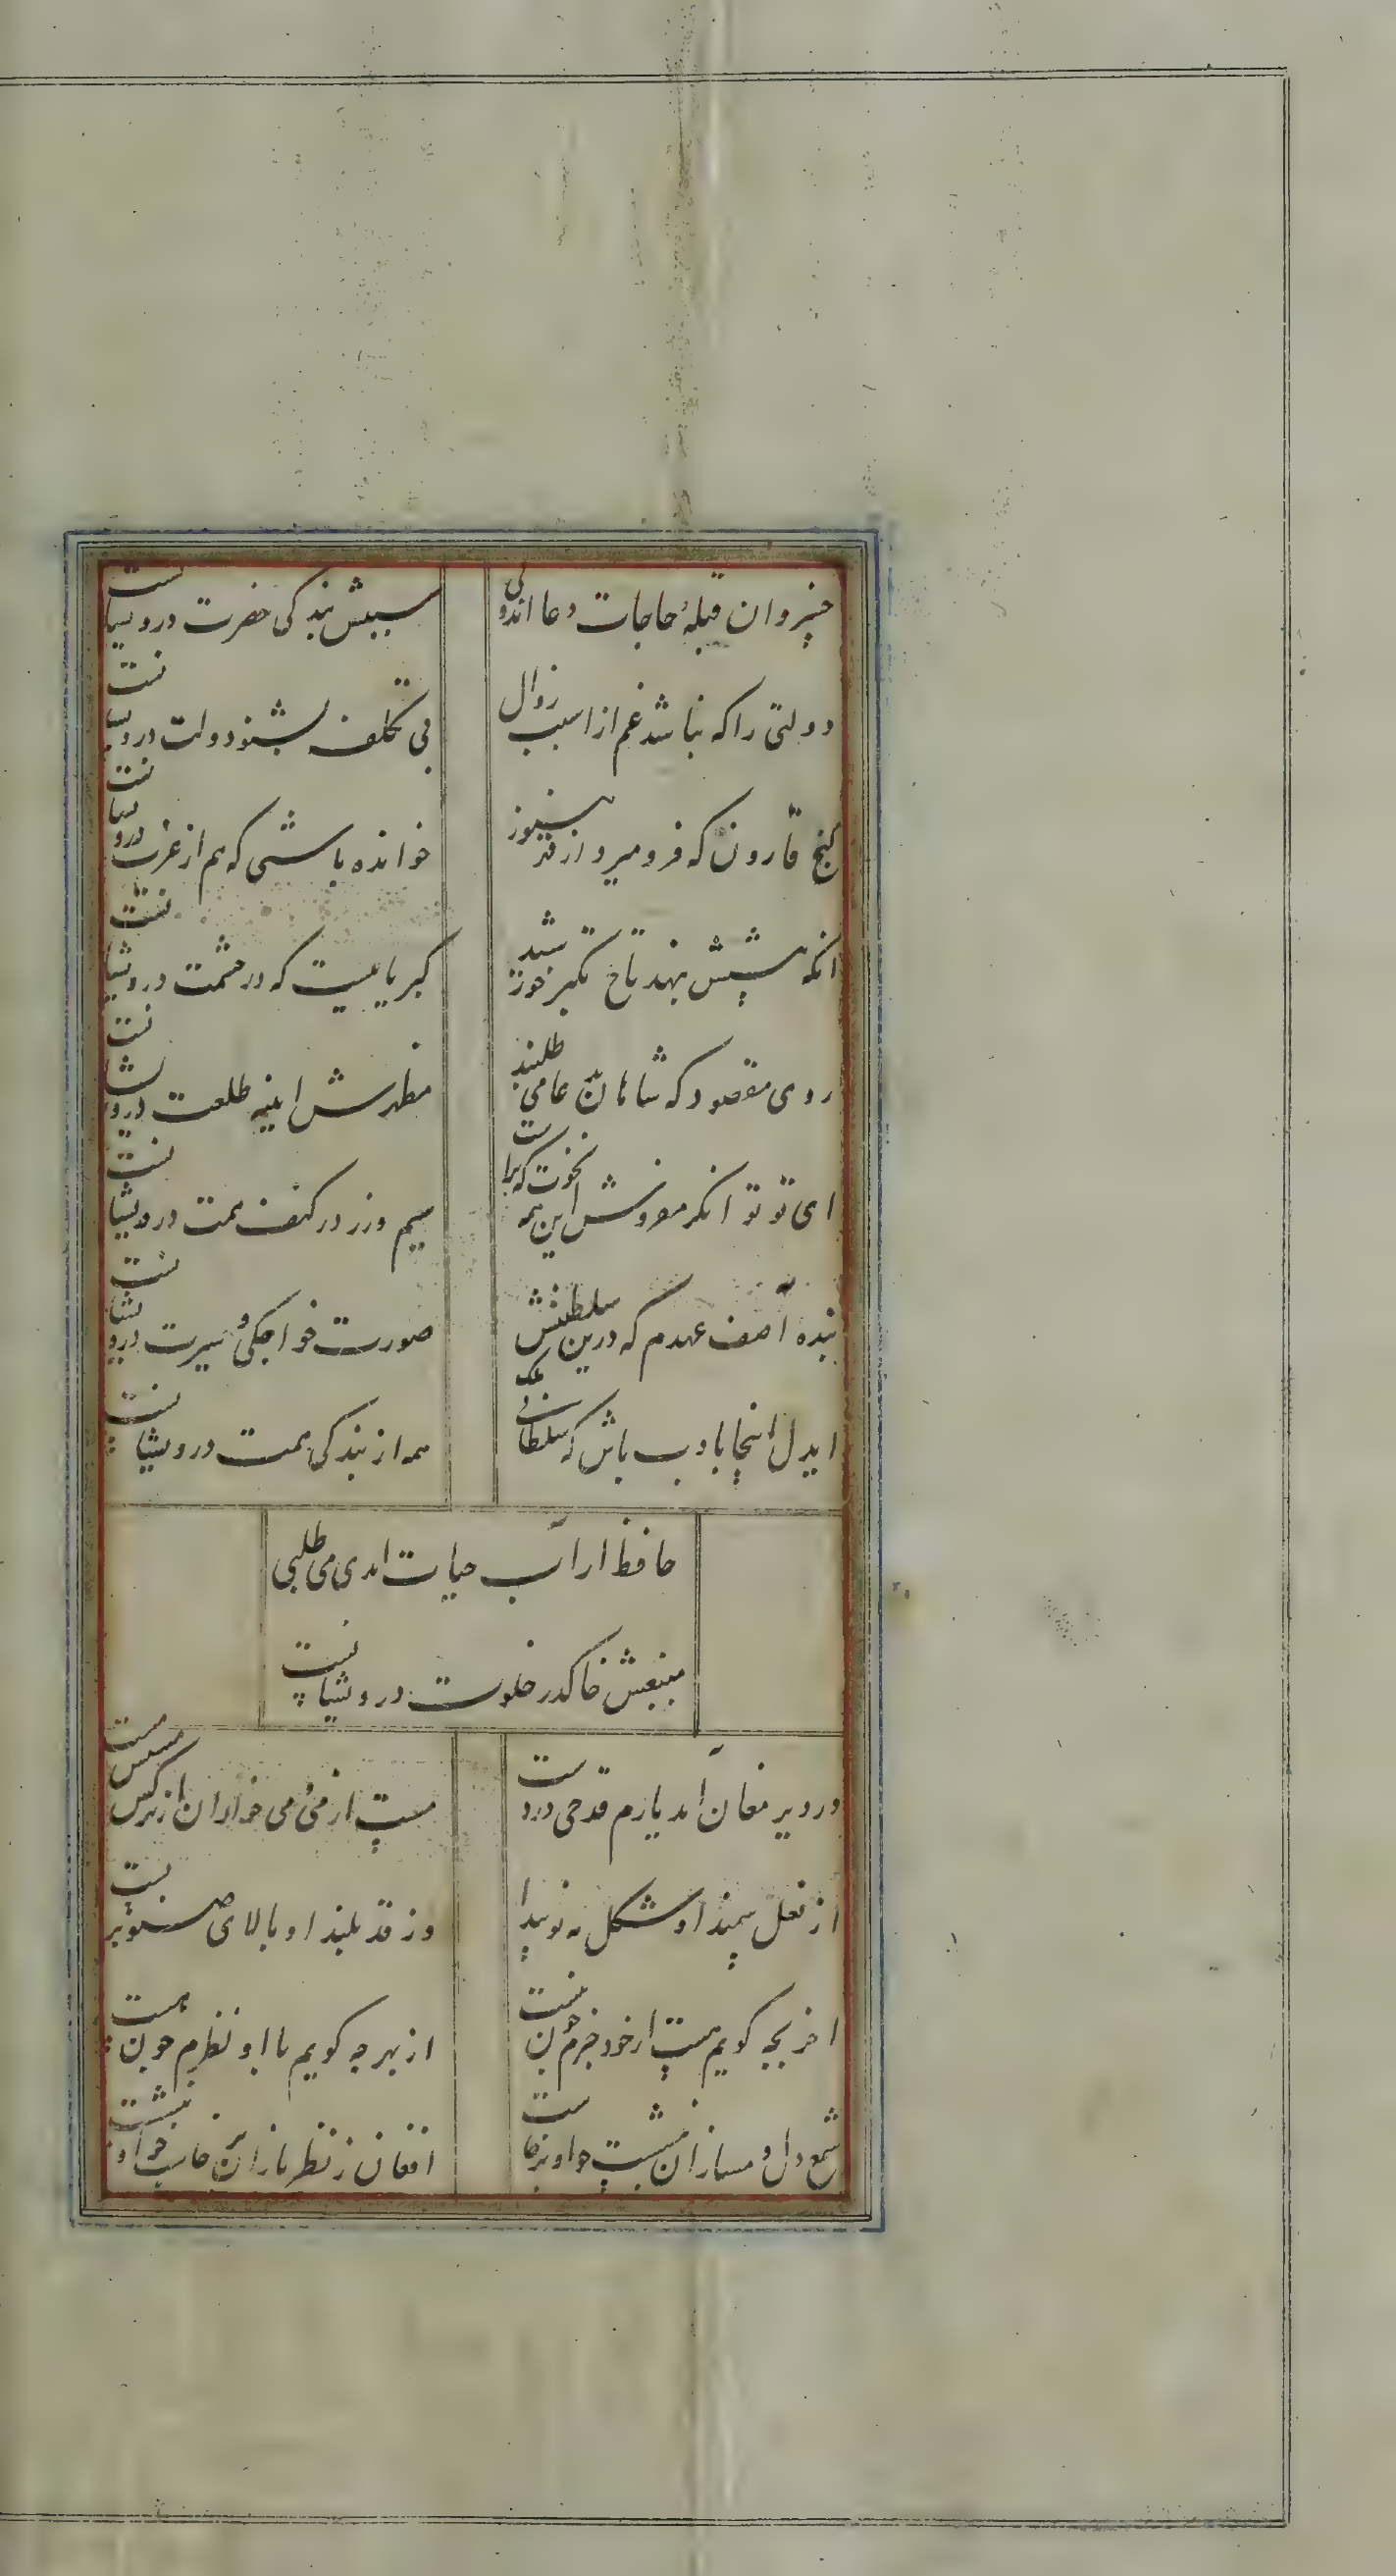 خسروان قبلهٔ حاجات دعااند ولی
سببش بندگی حضرت درویشانست
دولتی را که نباشد غم از اسیب زوال
بی تکلف بشنو دولت درویشانست
گنج قارون که فرو میرود از قعر هنوز
خوانده باشی که هم از غیرت درویشانست
انکه پیشش بنهد تاج تکبر خورشید
کبریاییست که در حشمت درویشانست
روی مقصود که شاهان بدعا می طلبند
مظهرش اینه طلعت درویشانست
ای توانکر مفروش این همه نخوت که ترا
سیم و زر در کنف همت درویشانست
بنده آصف عهدم که درین سلطنتش
صورت خواجکی و سیرت درویشانست
ایدل اینجا بادب باش که سلطانی و ملک
همه از بندگی همت درویشانست
حافظ ار آب حیات ابدی می طلبی
منبعش خاکدر خلوت درویشانست
در دیر مغان آمد یارم قدحی در دست
مست از می و می خواران از نرگس مستش مست
از نعل سمند او شکل مه نو پیدا
وز قد بلند او بالای صنوبر پست
اخر بچه کویم هست از خود خبرم چون نیست
از بهر چه کویم با او نظرم چون هست
شمع دل دمسازان بنشست چو او برخاست
افغان ز نظربازان برخاست چو او بنشست